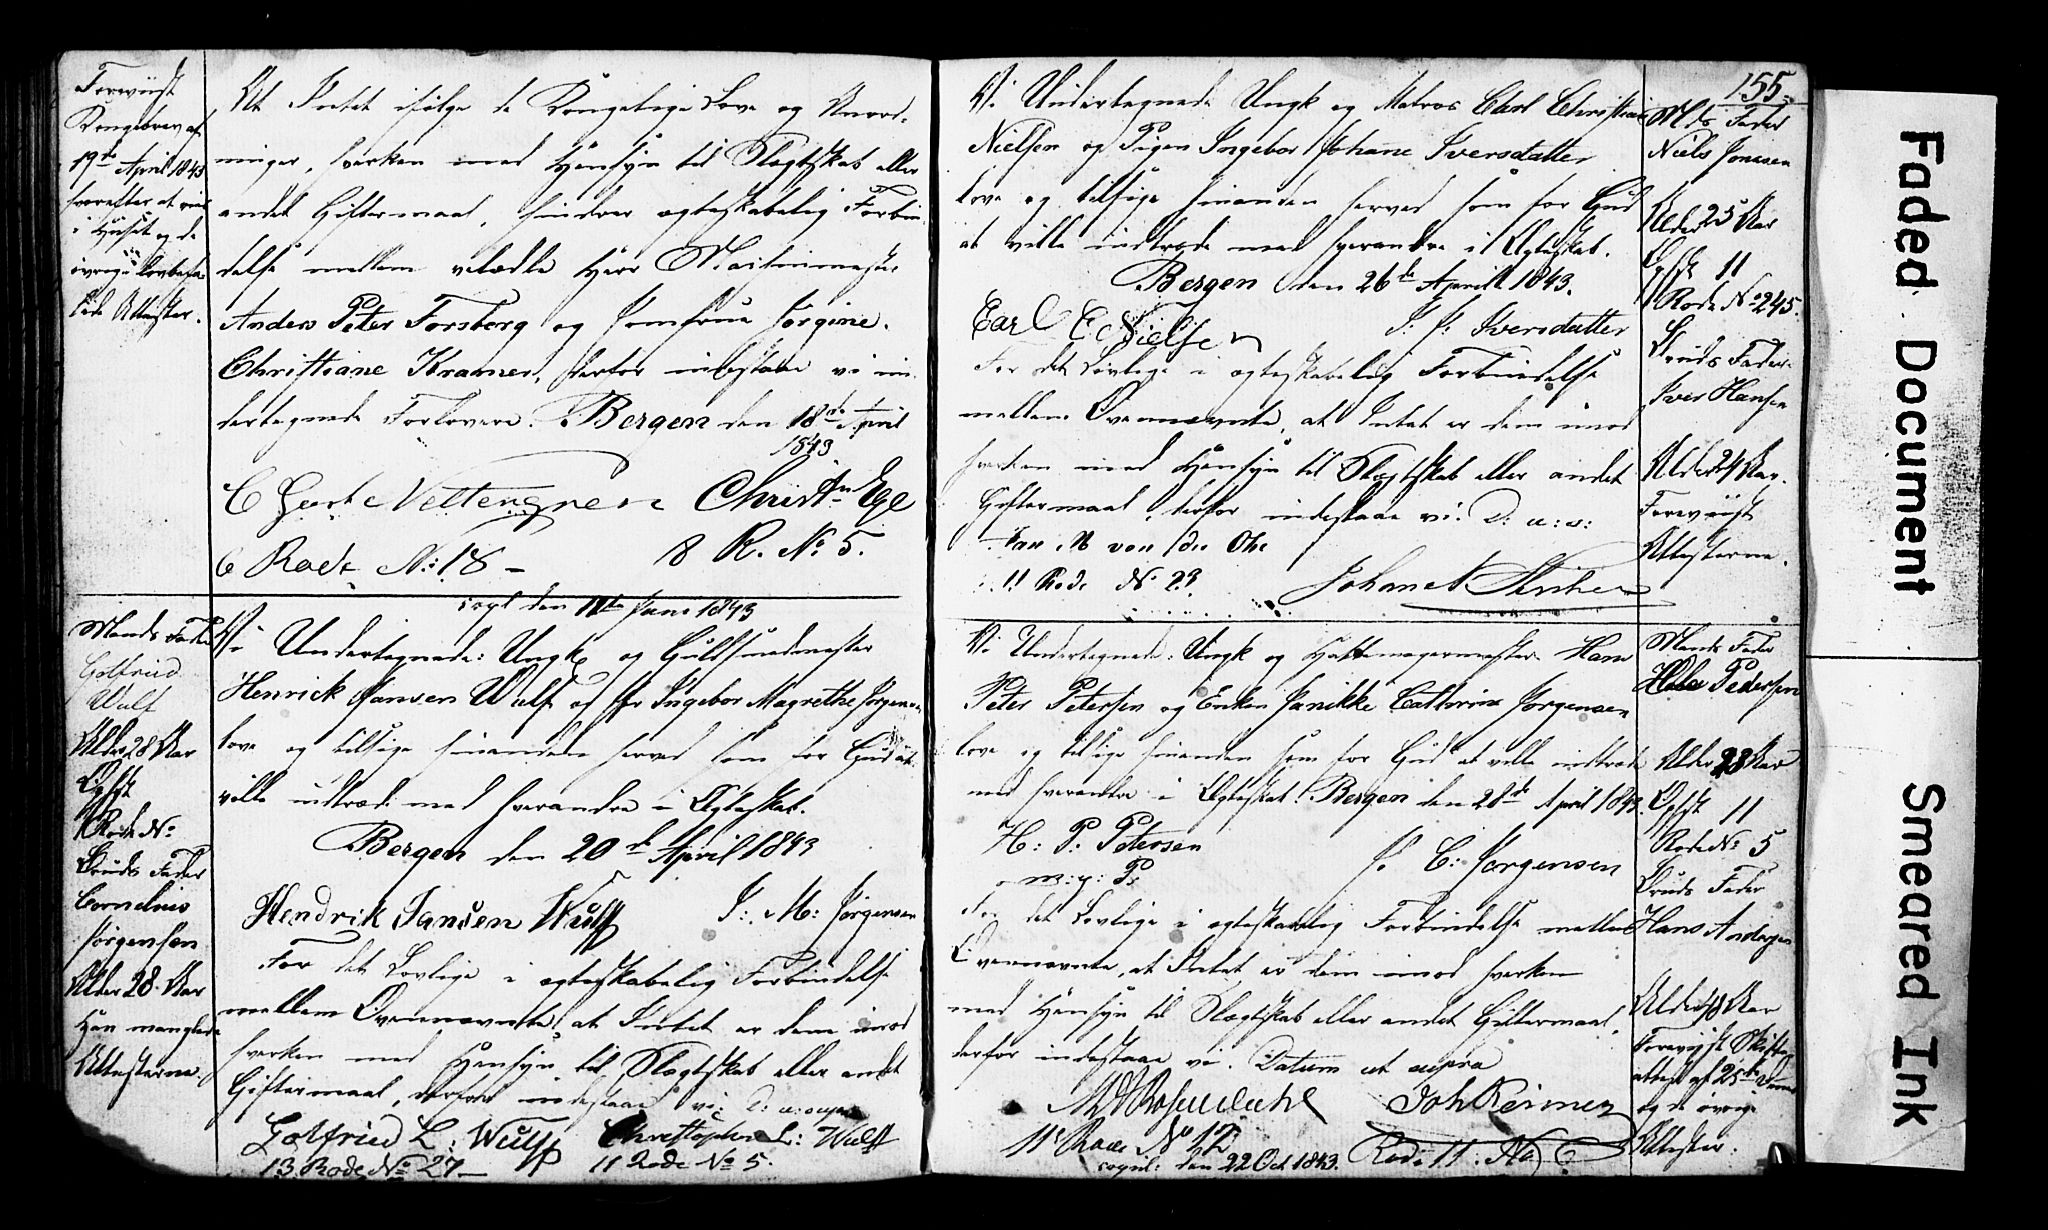 Foreviist
Kongebrev af
19de April 1843
hvorefter at vies
i Huset og de
øvrige lovbefa-
lede Attester.
At Intet ifølge de Kongelige Love og Anord-
ninger, hverken med Hensyn til Slægtskab eller
andet Giftermaal, hindrer ægteskabelig Forbin-
delse mellem velædle Herr Maskinmester
Anders Peter Forsberg og Jomfrue Jørgine
Christiane Kramer, derfor indestaae vi un-
dertegnede Forlovere. Bergen den 18de April
1843
C Gust Nettengren Christn Ege
6 Rode No: 18 - 8 R. No 5.
Mands Fader
Gotfried
Wulf
Alder 28 Aar
Opfdt
Rode No
Bruds Fader
Cornelius
Jørgensen
Alder 28 Aar
Han manglede
Attesterne.
copl den 11te Juni 1843
Vi Undertegnede: Ungk og Guldsmedmester
Henrick Jansen Wulf og Ingebor Magrethe Jørgensen
love og tilsige hinanden herved som for Gud at
ville indtræde med hverandre i Ægteskab.
Bergen den 20de April 1843
Hendrik Jansen Wulff I: M: Jørgensen
For det Lovlige i ægteskabelig Forbindelse
mellem Ovennævnte, at Intet er dem imod
hverken med Hensyn til Slægtskab eller andet
Giftermaal, derfor indestaae vi. D: u: supra
Gotfried L: Wulff Christopher L: Wulff
13 Rode No 27 - 11 Rode No 5.
155
Vi Undertegnede Ungk og Matros Carl Christian
Nielsen og Pigen Ingebor Johane Iversdatter
love og tilsige hinanden herved som for Gud
at ville indtræde med hverandre i Ægteskab.
Bergen den 26de April 1843.
Carl C Nielsen I: J: Iversdatter
For det Lovlige i ægteskabelig Forbindelse
mellem Ovennævnte, at Intet er dem imod
hverken med Hensyn til Slægtskab eller andet
Giftermaal, derfor indestaae vi. D: u: s:
Jan M von der Ohe
11 Rode No 29.
Mds Fader
Niels Jonesen
Alder 25 Aar
Opfdt 11
Rode No 245.
Bruds Fader
Iver Hansen
Alder 24 Aar.
Foreviist
Attesterne.
Vi Undertegnede: Ungk og Hattemagermester Hans
Peter Petersen og Enken Janikke Cathrine Jørgensen
love og tilsige hinanden som for Gud at ville indtræde
med hverandre i Ægteskab. Bergen den 28de April 1843.
H: P: Petersen J. C: Jørgensen
m: p: P:
For det Lovlige i ægteskabelig Forbindelse mellem
Ovennævnte, at Intet er dem imod hverken
med Hensyn til Slægtskab eller andet Giftermaal,
derfor indestaae vi. Datum ut supra
Rosendahl Joh Reimer
11 Rode No 12 Rode 11. No 6
copul: den 22 Oct 1843.
Mands Fader
Pedersen
Alder 28 Aar
Opfdt 11
Rode No 5
Bruds Fader
Hans Andersen
Alder 48 Aar
Foreviist Skifte-
attest af 25de
og de øvrige
Attester.
Faded Document
Smeared Ink